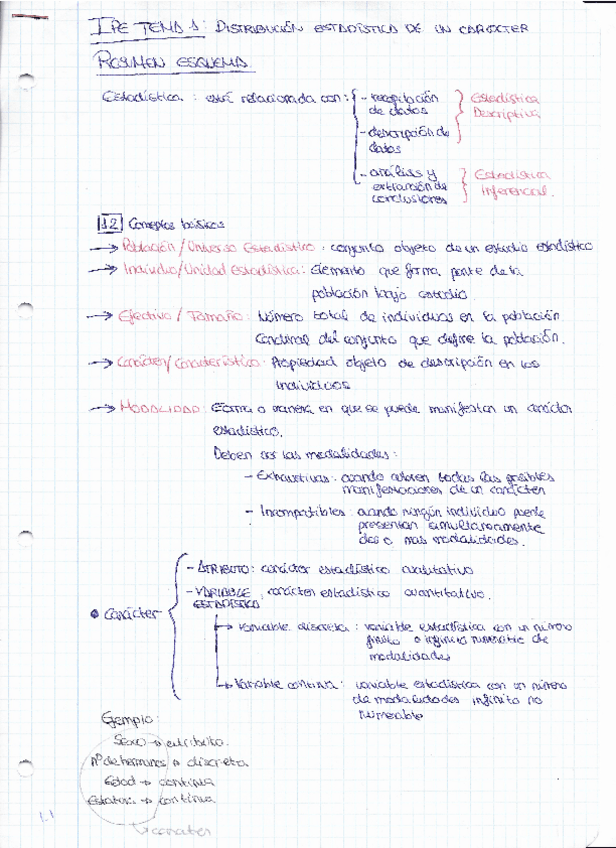 IPE TEMA 1: DISTRIBUCIÓN ESTADÍSTICA DE UN CARÁCTER
RESUMEN ESQUEMA
Estadística: está relacionada con: - recopilación de datos
- descripción de datos
} Estadística Descriptiva
- análisis y extracción de conclusiones
} Estadística Inferencial.
1.2 Conceptos básicos
→ Población / Universo Estadístico: conjunto objeto de un estudio estadístico
→ Individuo/Unidad Estadística: Elemento que forma parte de la
población bajo estudio.
→ Efectivo / Tamaño: Número total de individuos en la población.
Cardinal del conjunto que define la población.
→ Carácter/Característica: Propiedad objeto de descripción en los
individuos
→ MODALIDAD: Forma o manera en que se puede manifestar un carácter
estadístico.
Deben ser las modalidades:
- Exhaustivas: cuando cubren todas las posibles
manifestaciones de un carácter
- Incompatibles: cuando ningún individuo puede
presentar simultáneamente
dos o más modalidades.
• Carácter
- ATRIBUTO: carácter estadístico cualitativo
- VARIABLE ESTADÍSTICA: carácter estadístico cuantitativo.
→ Variable discreta: variable estadística con un número
finito o infinito numerable de
modalidades
→ Variable continua: variable estadística con un número
de modalidades infinito no
numerable
Ejemplo:
Sexo → atributo.
Nº de hermanos → discreta
Edad → continua
Estatura → continua
→ carácter
1.1